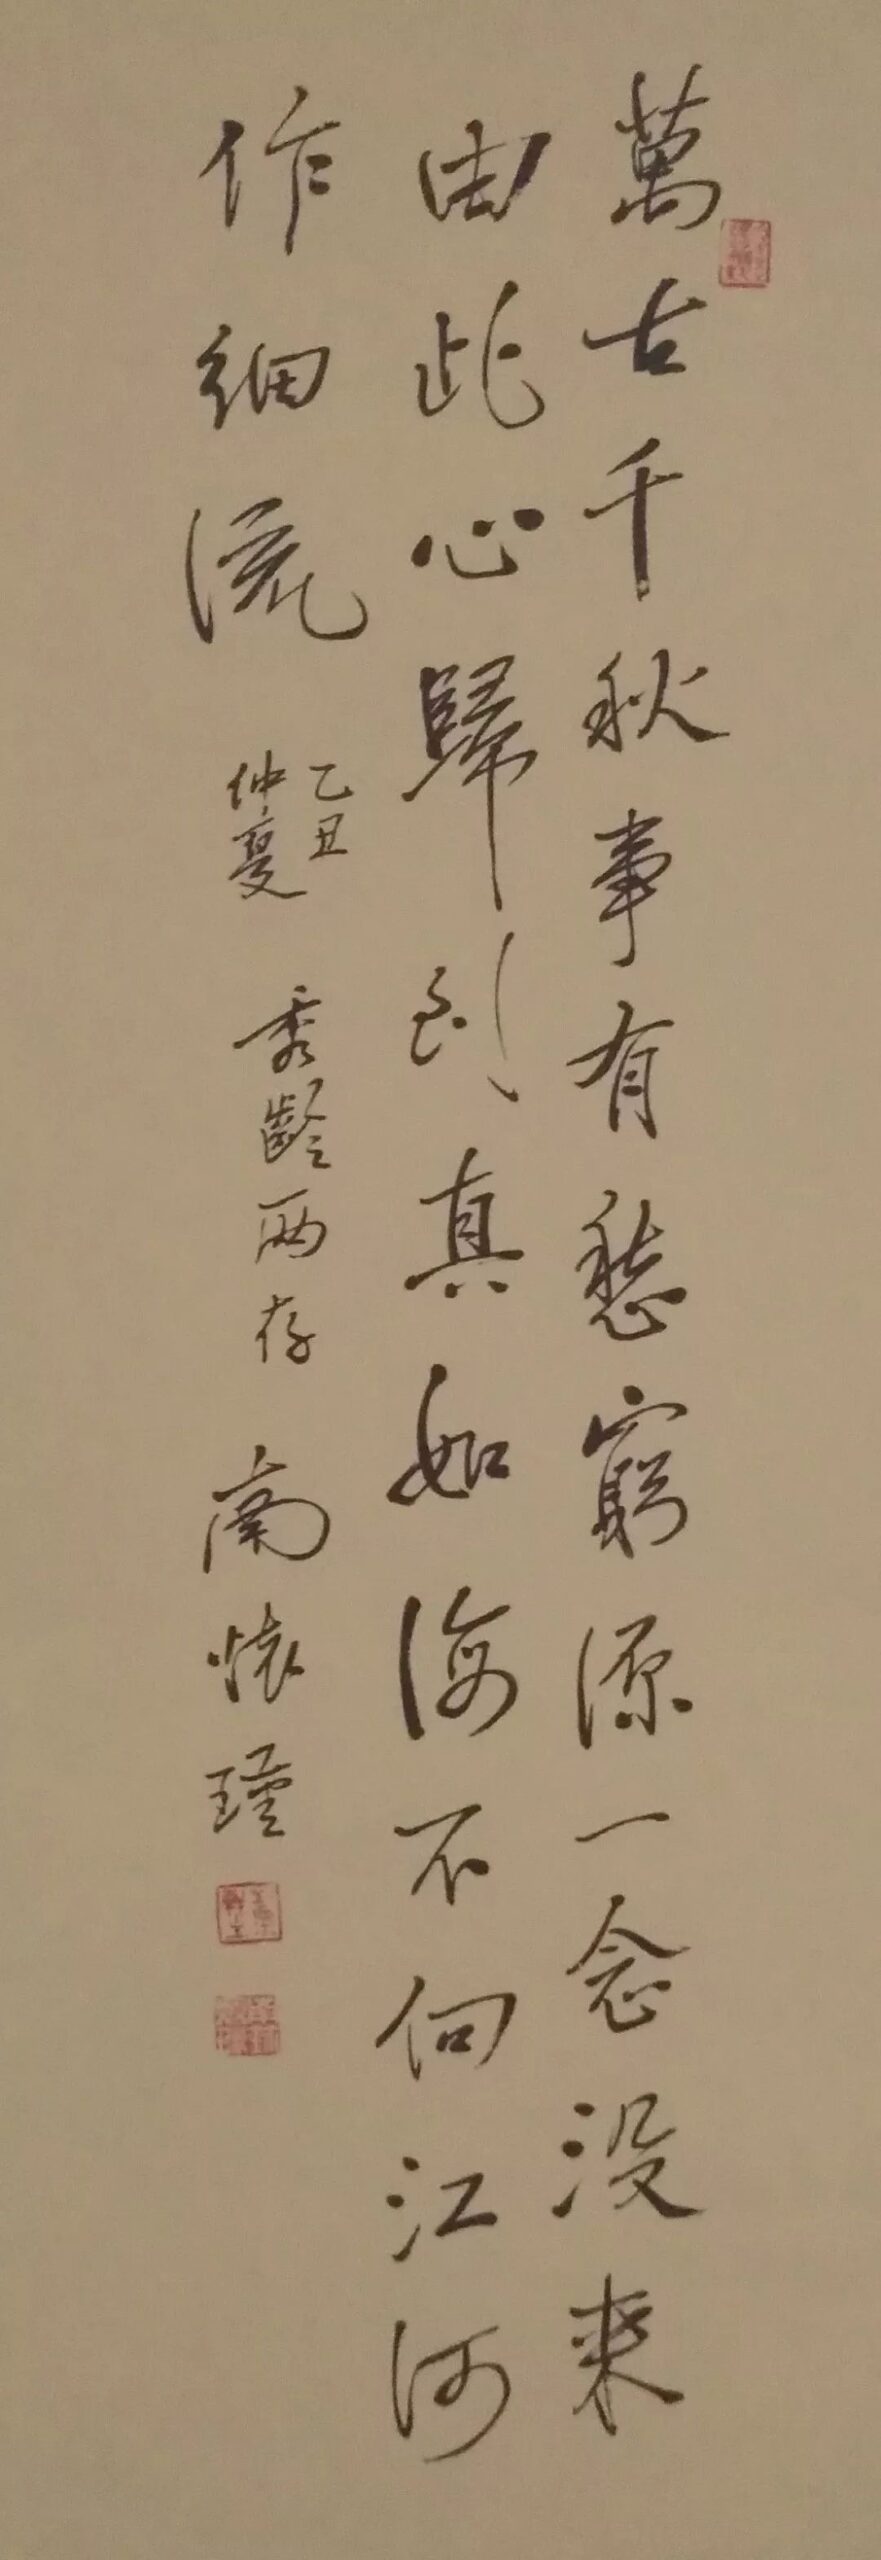 萬古千秋事有愁窮源一念没來
由此心歸到真如海不向江河
作細流
乙丑
仲夏
秀齡兩存
南懷瑾